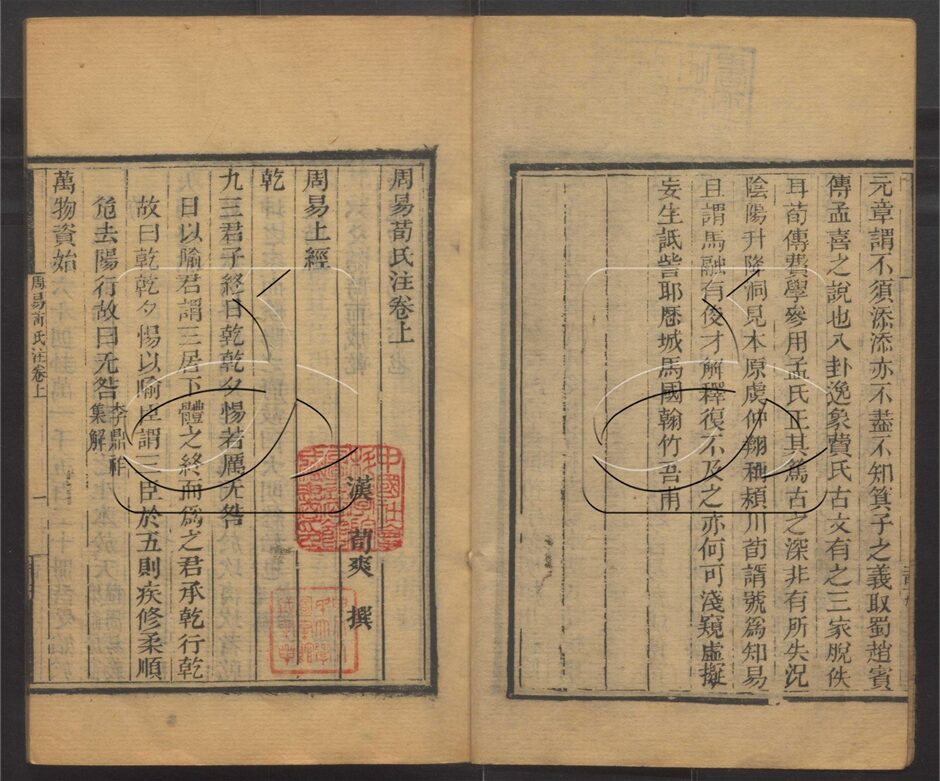 元章謂不須添添亦不盡不知箕子之義取蜀趙賓
傳孟喜之說也八卦逸象費氏古文有之三家脫佚
耳荀傳費學參用孟氏正其篤古之深非有所失況
陰陽升降洞見本原虞仲翔稱潁川荀諝號為知易
且謂馬融有俊才解釋復不及之亦何可淺窺虛擬
妄生詆訾耶歷城馬國翰竹吾甫
周易荀氏注卷上
漢 荀爽 撰
周易上經
乾
九三君子終日乾乾夕惕若厲无咎
日以喻君謂三居下體之終而為之君承乾行乾
故曰乾乾夕惕以喻臣謂三臣於五則疾修柔順
危去陽行故曰无咎李鼎祚集解
萬物資始
周易荀氏注卷上
一